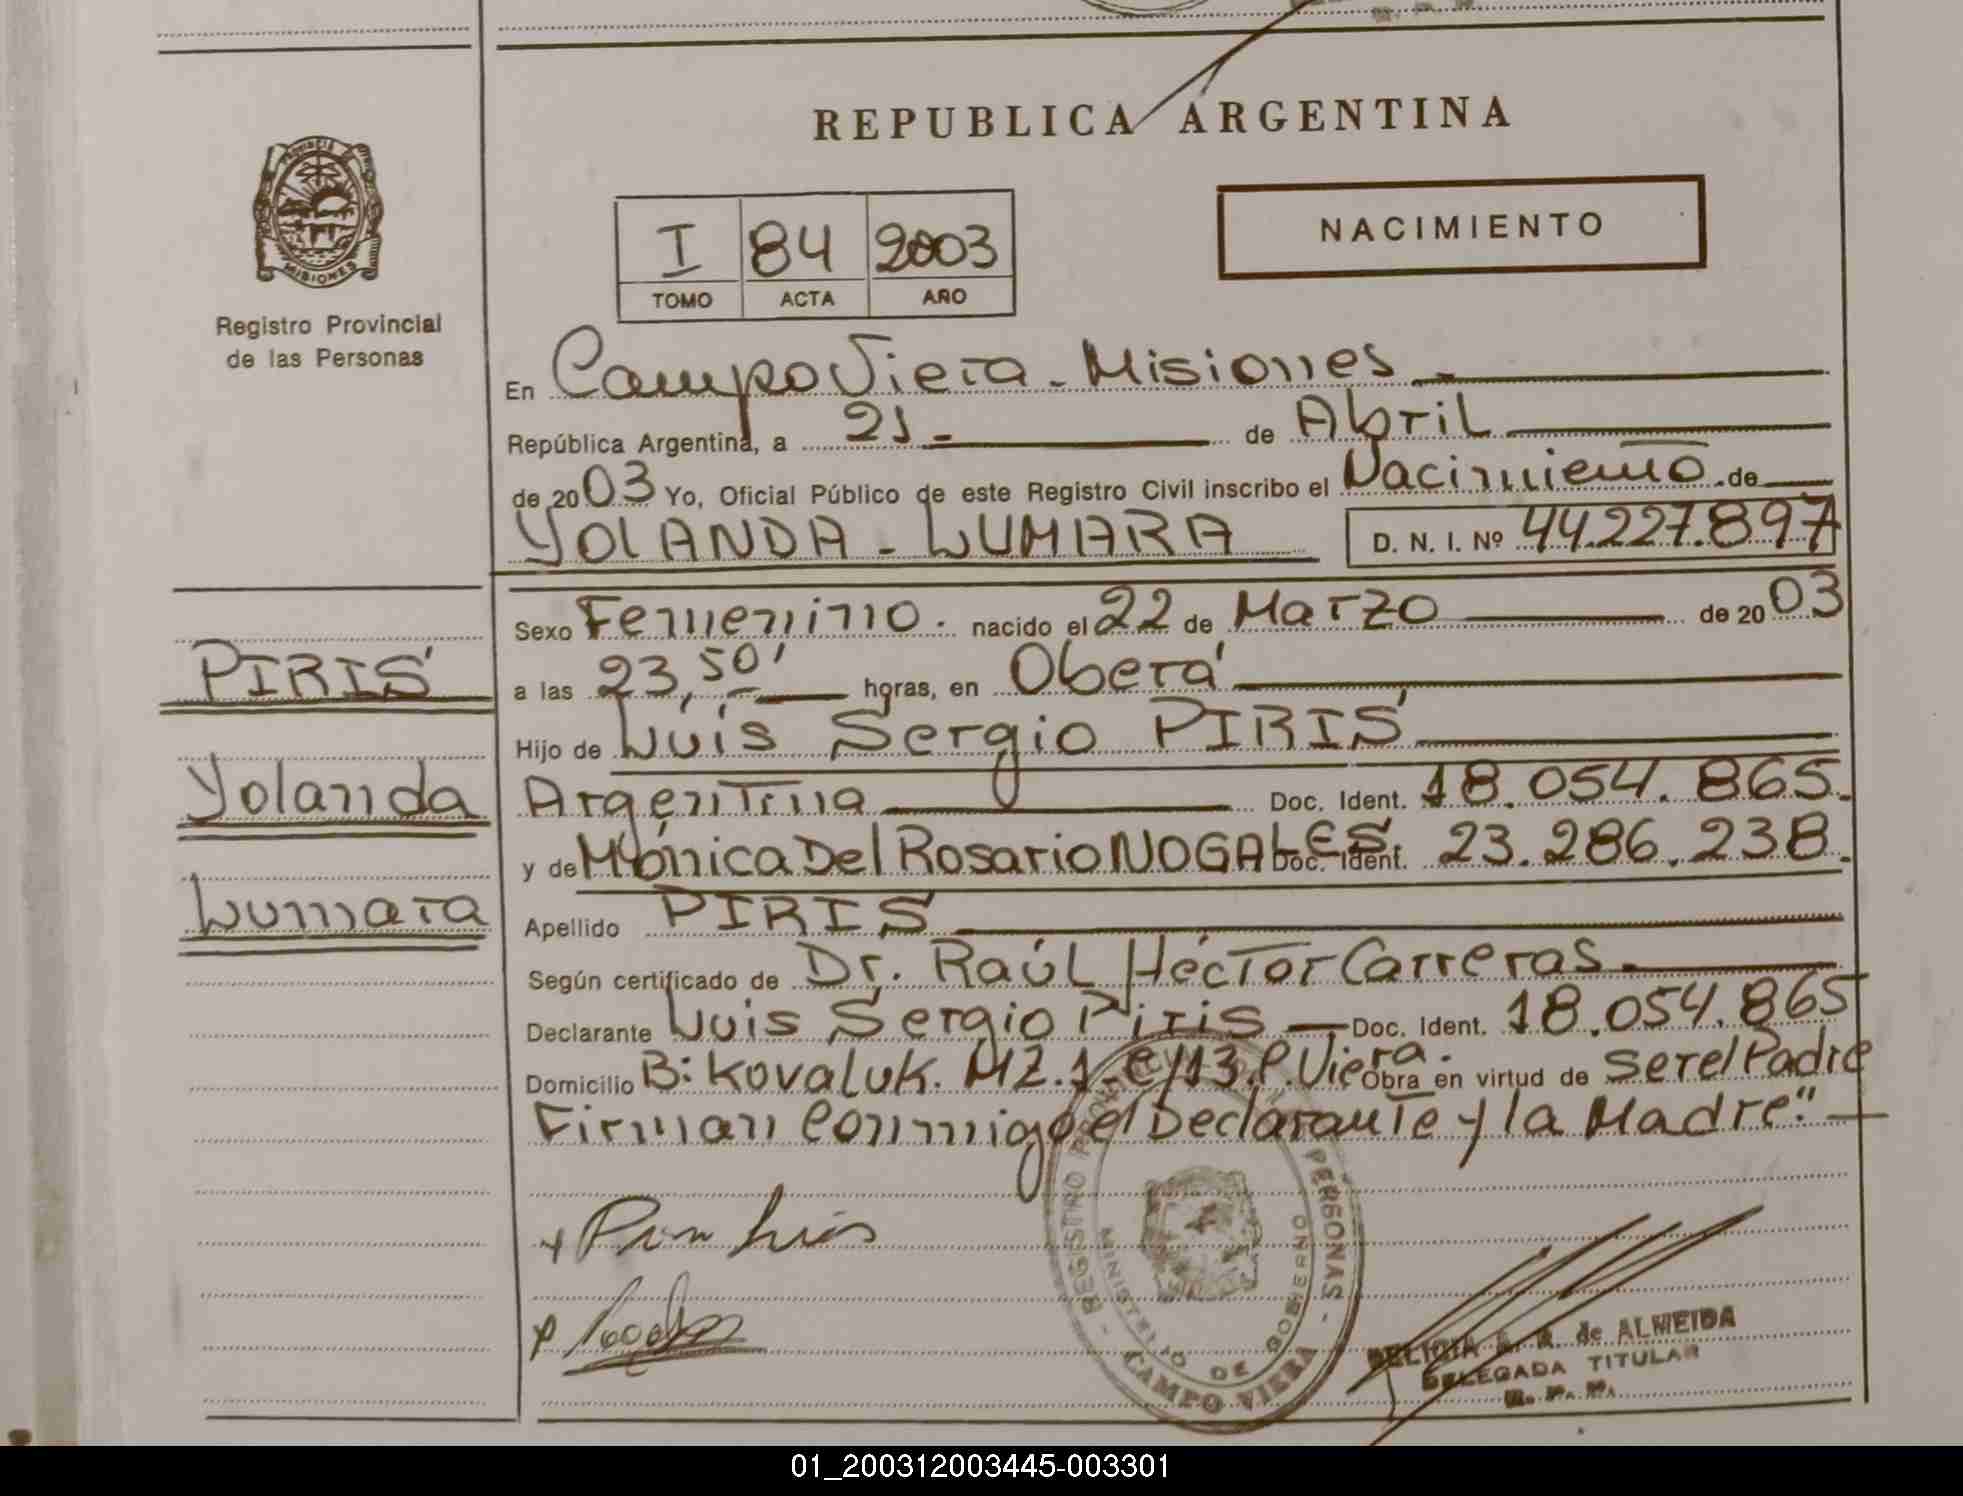 REPUBLICA ARGENTINA
PROVINCIA
MISIONES
Registro Provincial
de las Personas
I 84 2003
TOMO ACTA AÑO
NACIMIENTO
En Campo Viera - Misiones -
República Argentina, a 21 - de Abril
de 2003 Yo, Oficial Público de este Registro Civil inscribo el Nacimiento . de
YOLANDA - LUMARA D. N. I. Nº 44.227.897
Sexo Femenino . nacido el 22 de Marzo de 2003
a las 23,50' horas, en Oberá
PIRIS
Hijo de Luis Sergio PIRIS
Yolanda
Argentina Doc. Ident. 18.054.865.
y de Mónica Del Rosario NOGALES. Doc. Ident. 23.286.238.
Lumara
Apellido PIRIS
Según certificado de Dr. Raúl Héctor Carreras.
Declarante Luis Sergio Piris — Doc. Ident. 18.054.865
Domicilio B: Kovaluk. MZ.1-C/13.C.Viera. Obra en virtud de ser el Padre
Firman Conmigo el Declarante y la Madre."
REGISTRO PERSONAS
MINISTERIO DE GOBIERNO
CAMPO VIERA
de ALMEIDA
DELEGADA TITULAR
01_200312003445-003301